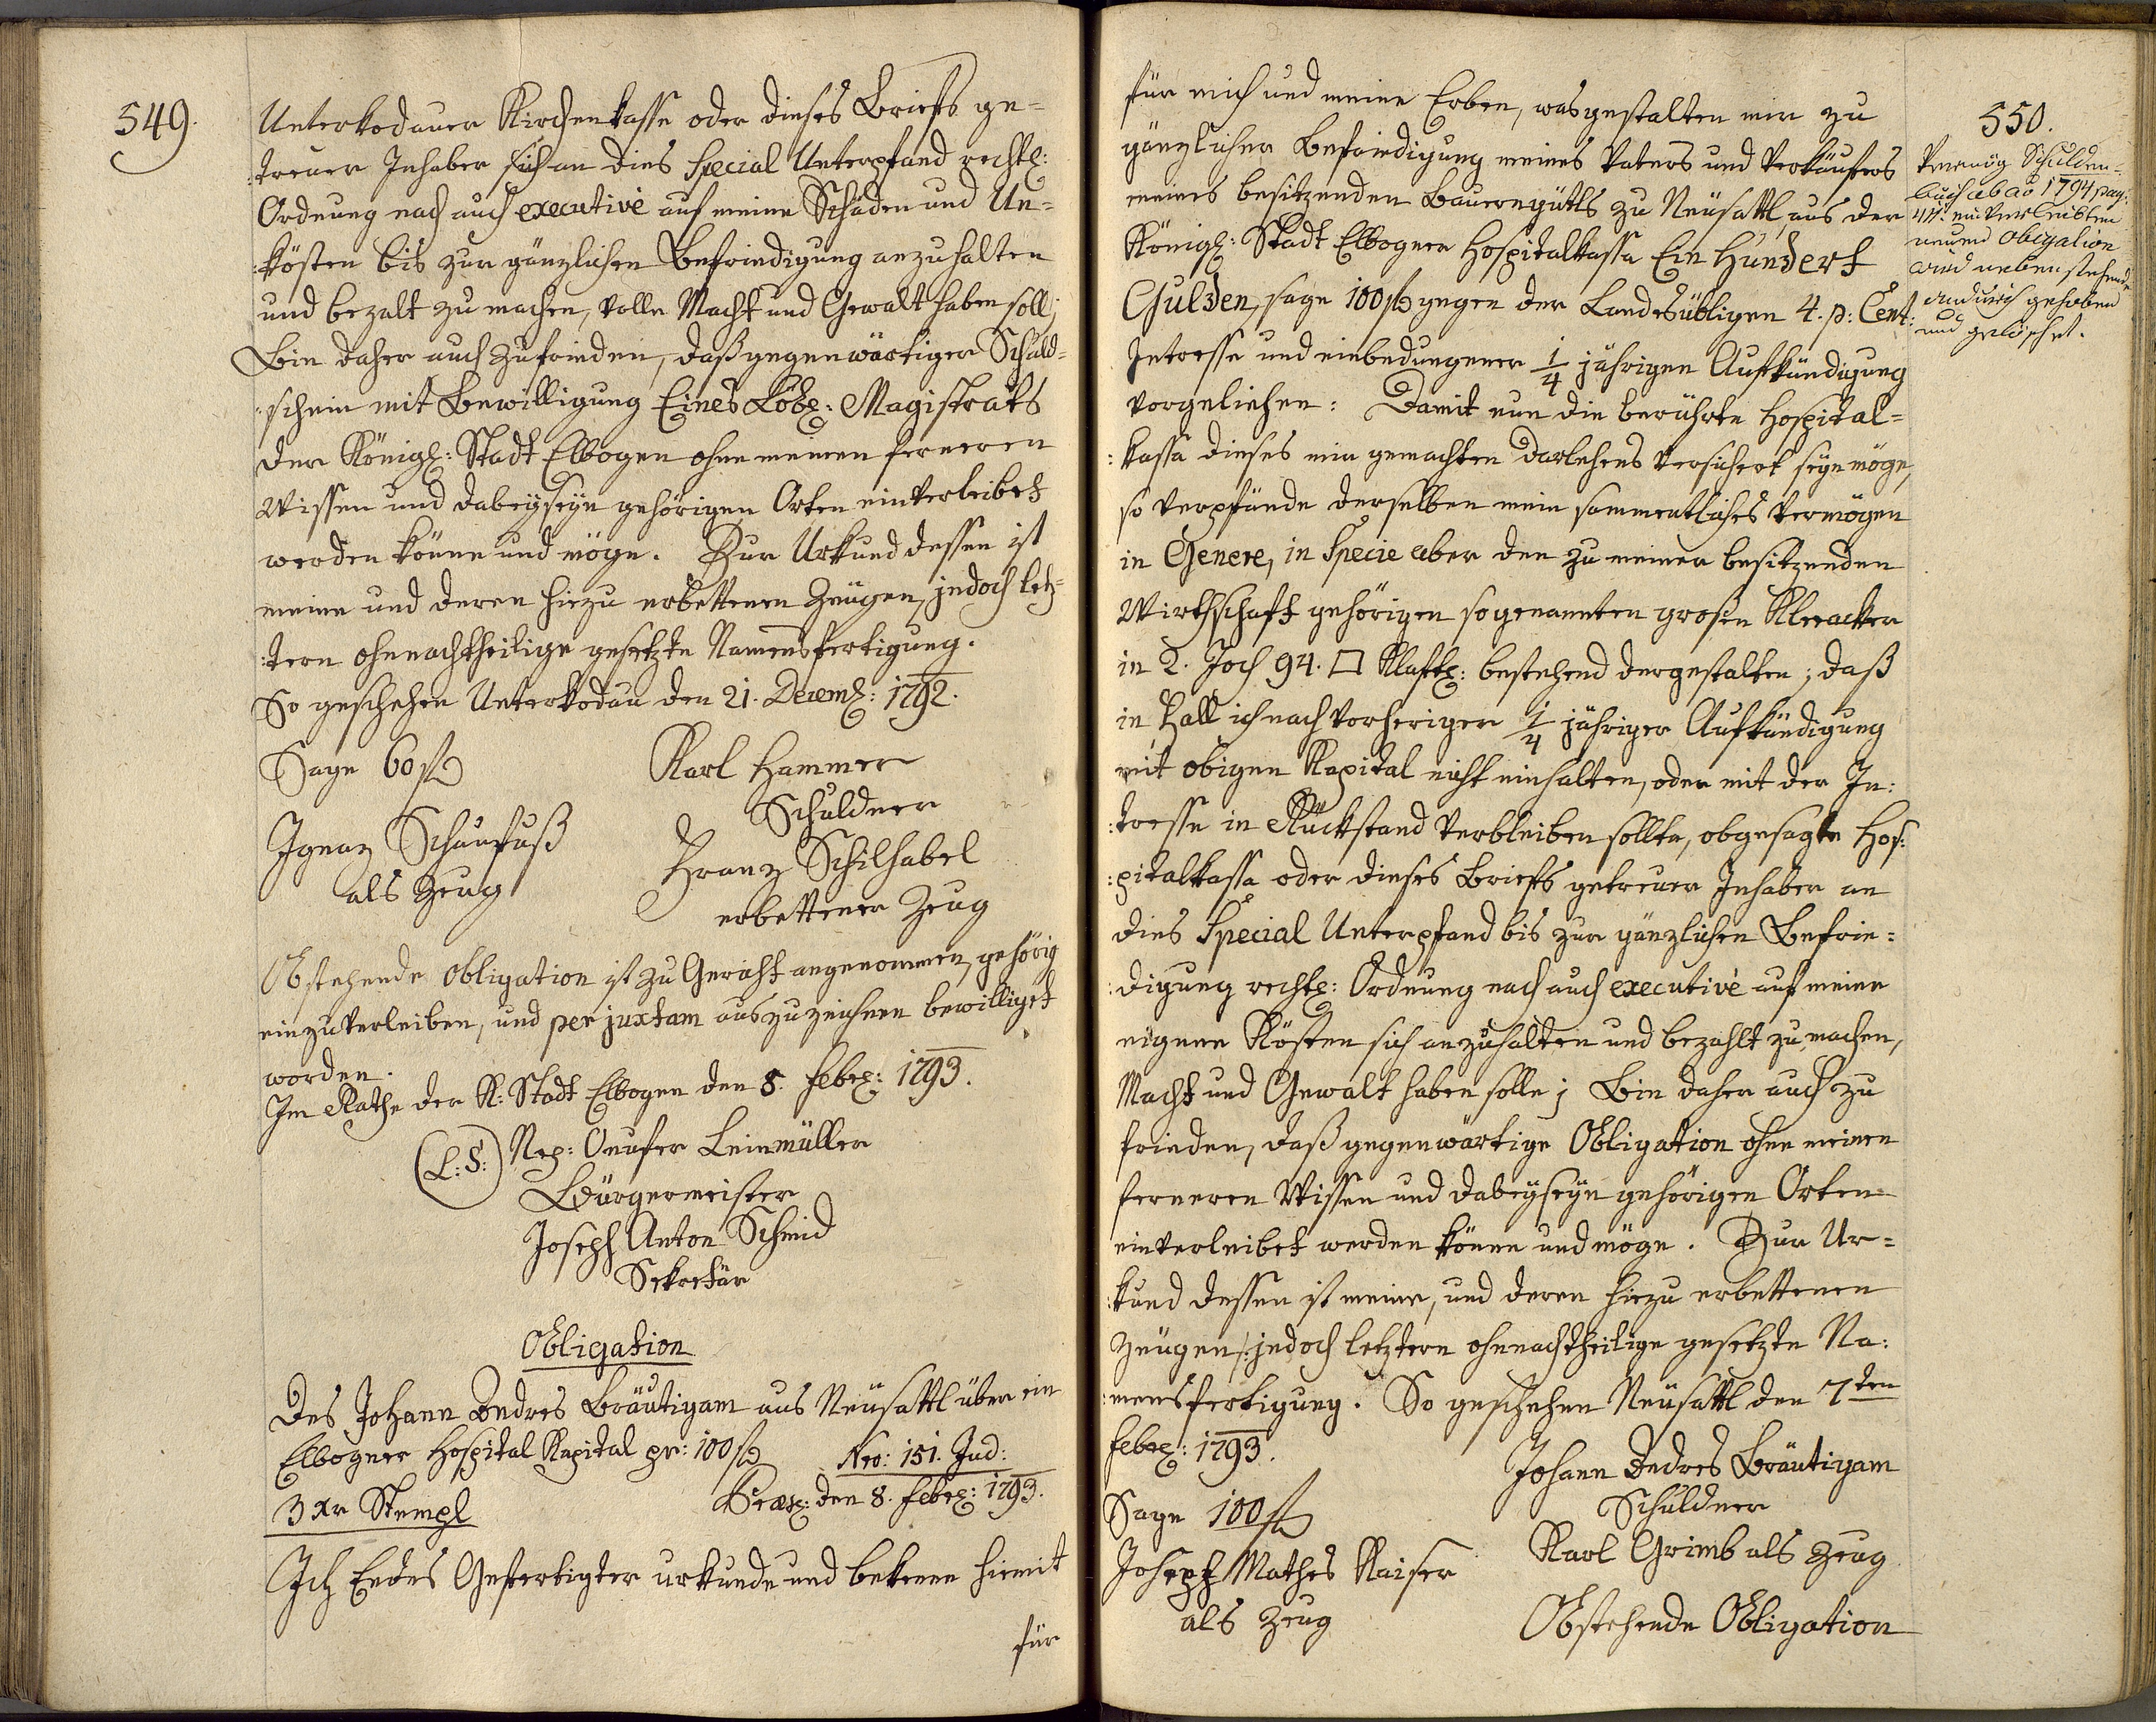 549.
Unterkodauer Kirchenkasse oder dieses Briefs ge=
:treuer Inhaber sich an dies Special Unterpfand rechtl:
Ordnung nach auch executivè auf meine Schäden und Un=
:kösten bis zur gänzlichen Befriedigung anzuhalten
und bezalt zu machen, volle Macht und Gewalt haben soll;
Bin daher auch zufrieden, daß gegenwärtiger Schuld=
:schein mit Bewilligung Eines Löbl: Magistrats
der Königl: Stadt Elbogen ohne meinen ferneren
Wissen und dabeyseyn gehörigen Orten einverleibet
werden könne und möge. Zur Urkund dessen ist
meine und deren hiezu erbettenen Zeügen, jedoch letz=
:tern ohnnachtheilige gesetzte Namensfertigung.
So geschehen Unterkodau den 21. Decemb: 1792.
Sage 60 f
Karl Hammer
Schuldner
Ignaz Schaufuß
als Zeug
Franz Schilhabel
erbettener Zeug
Obstehende Obligation ist zu Gericht angenommen, gehörig
einzuverleiben, und per juxtam auszuzeichnen bewilliget
worden.
Im Rathe der K: Stadt Elbogen den 8. Febr: 1793.
(L:S:) Nep: Onufer Leinmüller
Bürgermeister
Joseph Anton Schmid
Sekretär
Obligation
Des Johann Andres Bräutigam aus Neüsattl über ein
Elbogner Hospital Kapital pr: 100 f Nro: 151. Jud:
3 Xr Stempl
Præs: den 8. Febr: 1793.
Ich Endes Gefertigter urkunde und bekenne hiemit
für
550.
für mich und meine Erben, wasgestalten mir zu
gänzlicher Befriedigung meines Vaters und Verkäufers
meines besitzenden Bauerngütls zu Neüsattl, aus der
Königl: Stadt Elbogner Hospitalkassa Ein Hundert
Gulden, sage 100 f gegen der Landesübligen 4. p: Cent:
Intresse und einbedungener 1/4 jährigen Aufkündigung
vorgeliehen: Damit nun die berührte Hospital=
:kassa dieses mir gemachten Darlehens versichert seyn möge,
so verpfände derselben mein sammentliches Vermögen
in Genere, in Specie aber den zu meiner besitzenden
Wirthschaft gehörigen sogenannten großen Kleeacker
in 2. Joch 94. □ Klaftl: bestehend dergestalten; daß
in Fall ich nach vorheriger 1/4 jähriger Aufkündigung
mit obigen Kapital nicht einhalten, oder mit der In:
:tresse in Rückstand verbleiben sollte, obgesagte Hos:
:pitalkassa oder dieses Briefs getreuer Inhaber an
dies Special Unterpfand bis zur gänzlichen Befrie=
:digung rechtl: Ordnung nach auch executivè auf meine
eigene Kösten sich anzuhalten und bezahlt zu machen,
Macht und Gewalt haben solle; Bin daher auch zu
frieden, daß gegenwärtige Obligation ohne meinen
ferneren Wissen und dabeyseyn gehörigen Orten
einverleibet werden könne und möge. Zur Ur=
:kund dessen ist meine, und deren hiezu erbettenen
Zeügen /: jedoch letztern ohnnachtheilige gesetzte Na:
:mensfertigung. So geschehen Neüsattl den 7ten
Febr: 1793.
Johann Andres Bräutigam
Schuldner
Sage 100 f
Joseph Mathes Kaiser
als Zeug
Karl Grimb als Zeug
Obstehende Obligation
Vermög Schulden=
buch ab ao 1794 pag:
einverleibten
neuen Obligation
wird nebenstehende
andurch gehoben
und gelöschet.